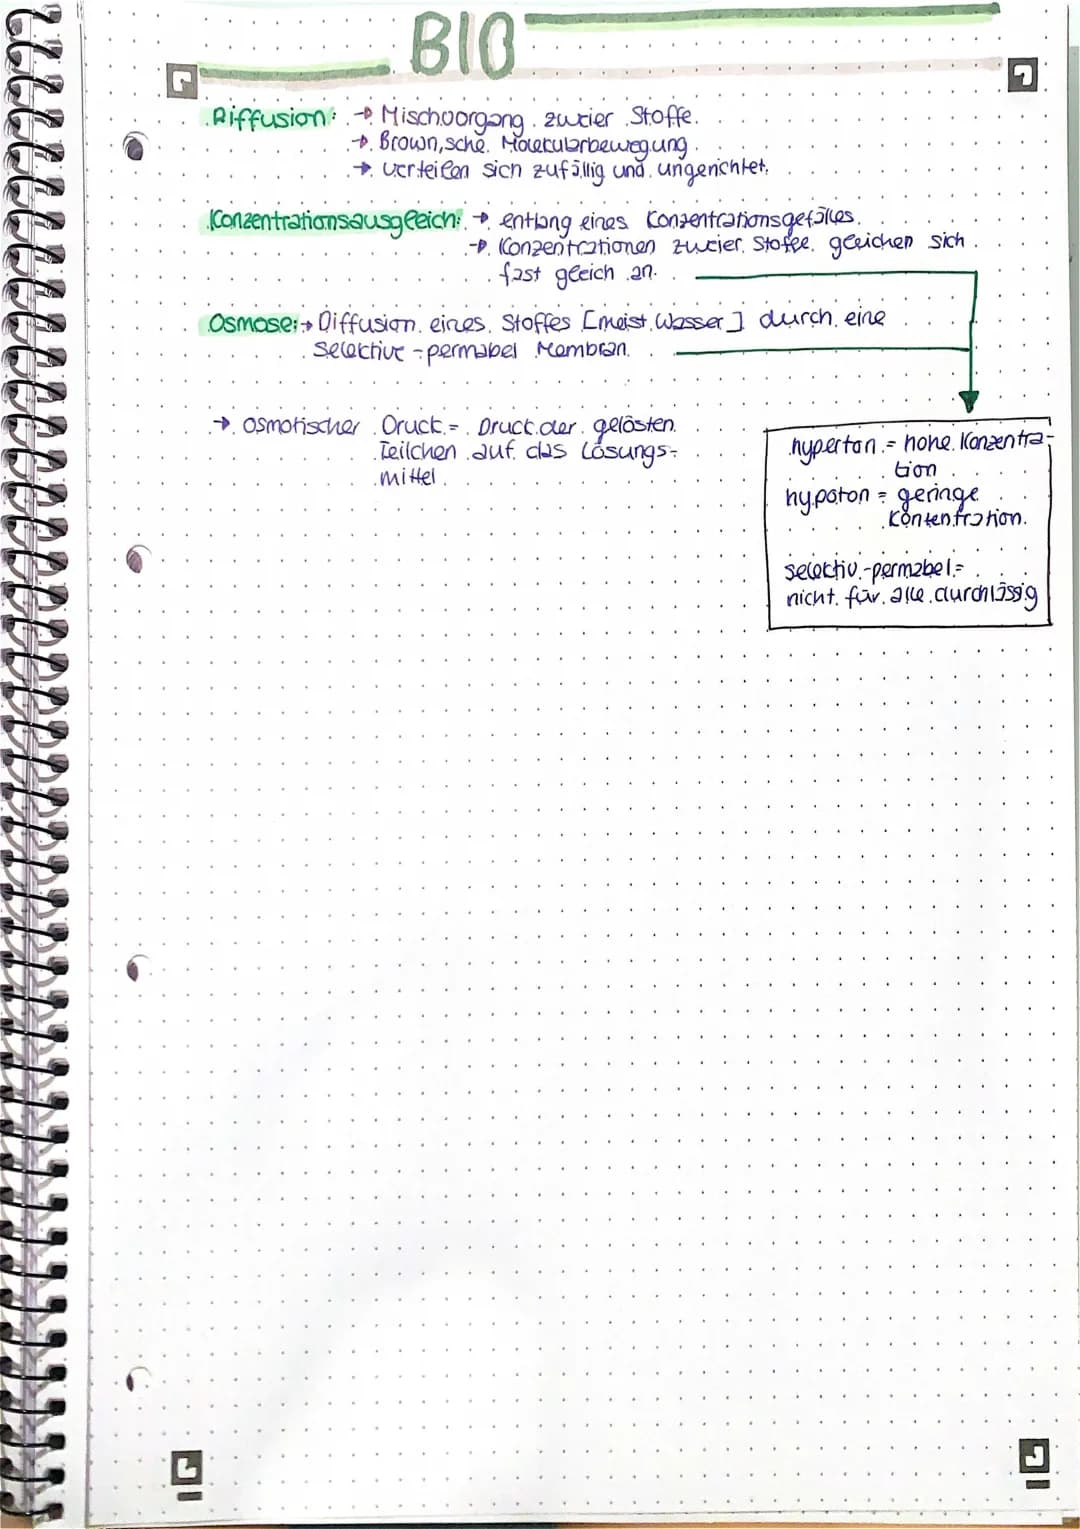 BIO
Diffusion: → Mischvorgang zweier Stoffe
→ Brown'sche Molekularbewegung
→ verteilen sich zufällig und ungerichtet.
Konzentrationsausgleich: → entlang eines Konzentrationsgefälles
→ Konzentrationen zweier Stoffe gleichen sich
fast gleich an.
Osmose: → Diffusion eines Stoffes [meist Wasser] durch eine
Selective-permabel Membran
→ osmotischer Druck = Druck der gelösten
Teilchen auf das Lösungs-
mittel
hyperton = hohe Konzentra-
tion
hypoton = geringe
Kontentration.
selectiv-permabel =
nicht für alle durchlässig